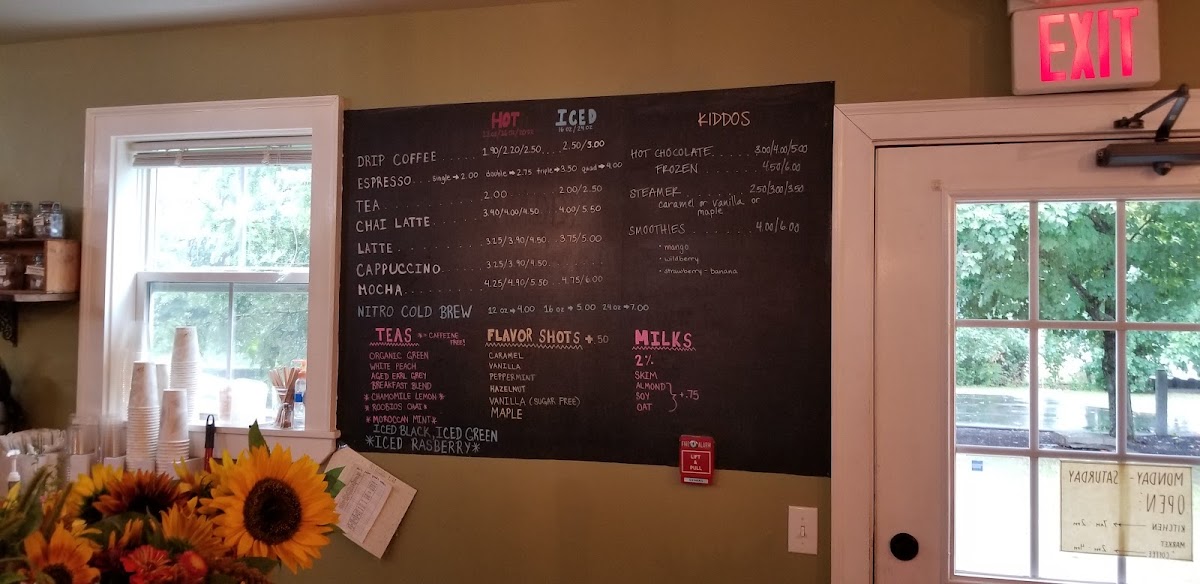 EXIT
HOT ICED KIDDOS
16 oz/24 oz
DRIP COFFEE ..... 1.90/2.20/2.50 ... 2.50/3.00
ESPRESSO ... single → 2.00 double → 2.75 triple → 3.50 quad → 4.00
TEA ..... 2.00 ..... 2.00/2.50
CHAI LATTE ..... 3.40/4.00/4.50 .. 4.00/5.50
LATTE ..... 3.25/3.90/4.50 .. 3.75/5.00
CAPPUCCINO ..... 3.25/3.90/4.50 ...
MOCHA ..... 4.25/4.90/5.50 .. 4.75/6.00
NITRO COLD BREW 12 oz → 4.00 16 oz → 5.00 24 oz → 7.00
HOT CHOCOLATE ..... 3.00/4.00/5.00
FROZEN ..... 4.50/6.00
STEAMER ..... 2.50/3.00/3.50
caramel or vanilla or
maple
SMOOTHIES ..... 4.00/6.00
• mango
• wildberry
• strawberry - banana
TEAS * = CAFFEINE FREE!
ORGANIC GREEN
WHITE PEACH
AGED EARL GREY
BREAKFAST BLEND
* CHAMOMILE LEMON *
* ROOIBOS CHAI *
* MOROCCAN MINT *
ICED BLACK, ICED GREEN
*ICED RASBERRY*
FLAVOR SHOTS +.50
CARAMEL
VANILLA
PEPPERMINT
HAZELNUT
VANILLA (SUGAR FREE)
MAPLE
MILKS
2%
SKIM
ALMOND
SOY } +.75
OAT
FIRE ALARM
LIFT
&
PULL
MONDAY - SATURDAY
OPEN:
KITCHEN → 7am 2pm
MARKET
+ COFFEE → 2pm 4pm